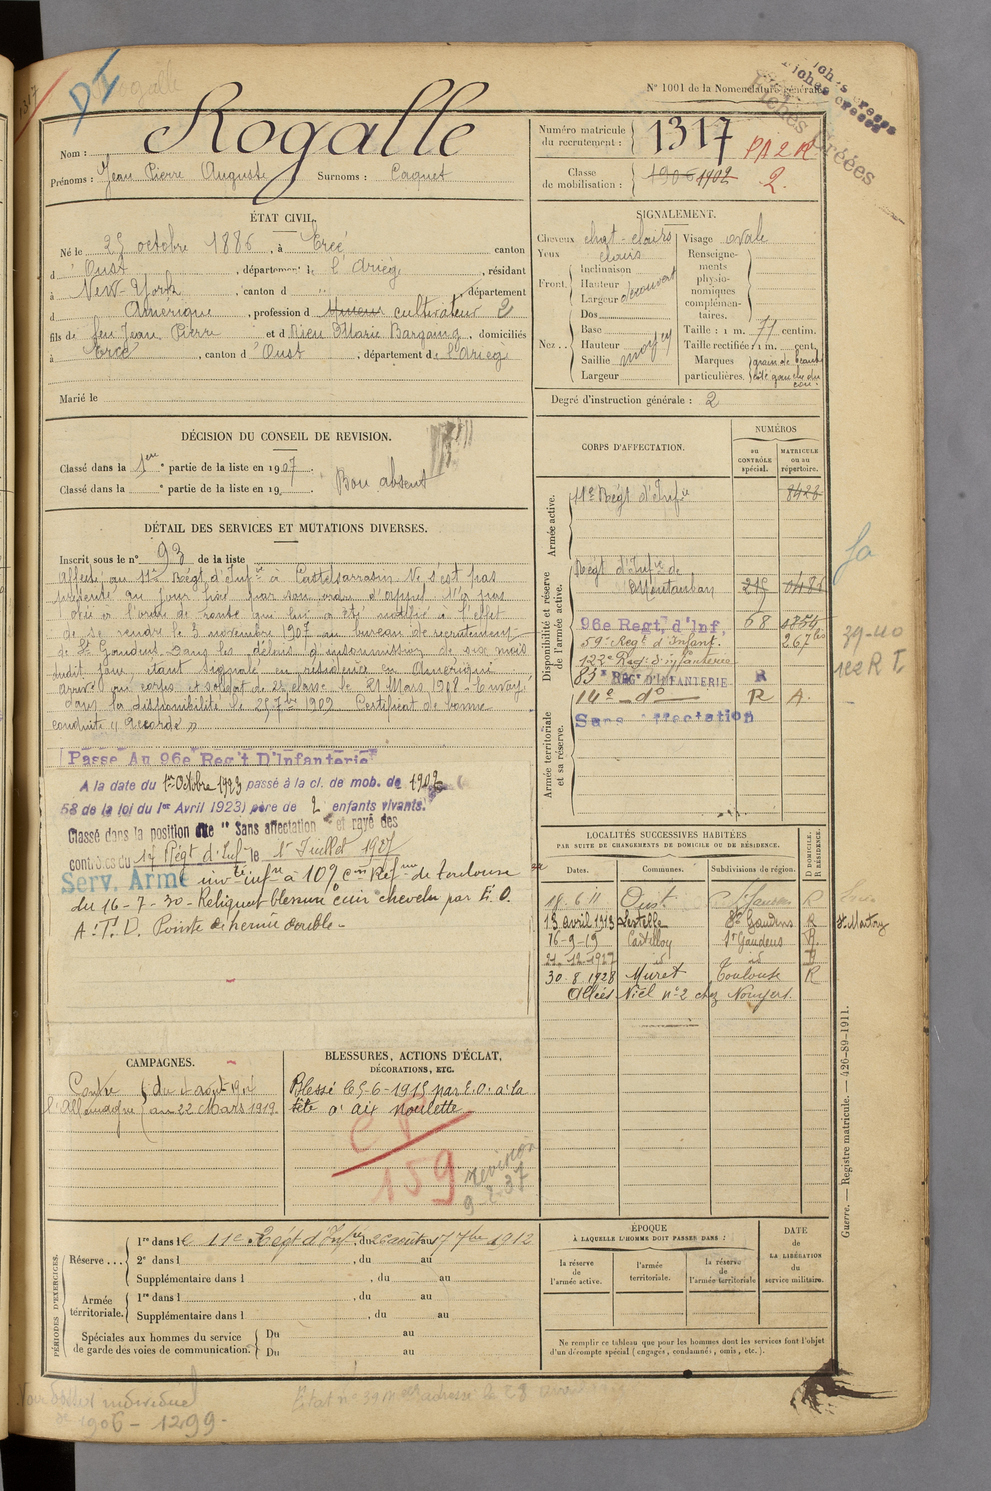 N° 1001 de la Nomenclature générale
Fiches créées
Nom : Rogalle
Prénoms : Jean Pierre Auguste Surnoms : Caquet
Numéro matricule du recrutement : 1317
Classe de mobilisation : 1906 1902
2.
ÉTAT CIVIL.
Né le 25 octobre 1886, à Ercé canton
d'Oust, département de l'Ariég, résidant
à New-York, canton d " département
d Amérique, profession d Mineur cultivateur 2
fils de feu Jean Pierre et d Rieu Marie Bargaing, domiciliés
à Ercé, canton d'Oust, département de l'Ariég
Marié le
SIGNALEMENT.
Cheveux chat-clairs
Yeux clairs
Front. Inclinaison
Hauteur
Largeur découvert
Nez. Dos
Base
Hauteur moyen
Saillie
Largeur
Visage ovale
Renseignements physionomiques complémentaires.
Taille : 1 m. 71 centim.
Taille rectifiée : 1 m. cent.
Marques particulières. grain de beauté côté gauche du cou.
Degré d'instruction générale : 2
DÉCISION DU CONSEIL DE REVISION.
Classé dans la 1ere partie de la liste en 1907.
Classé dans la e partie de la liste en 19 .
Bon absent
DÉTAIL DES SERVICES ET MUTATIONS DIVERSES.
Inscrit sous le n° 93 de la liste
Affecté au 11e Régt d'Infie à Castelsarrasin Ne s'est pas
présenté au jour fixé par son ordre d'appel N'a pas
obéi à l'ordre de route qui lui a été notifié à l'effet
de se rendre le 3 novembre 1907 au bureau de recrutement
de St Gaudens Dans les délais d'insoumission de six mois
dudit jour, étant signalé en résidence en Amérique
Arrivé au corps et soldat de 2e classe le 21 Mars 1908 - Envoyé
dans la disponibilité le 25 7bre 1909 Certificat de bonne
conduite "Accordé"
Passé Au 96e Reg't D'Infanterie
A la date du 1er Octobre 1923 passé à la cl. de mob. de 1902
58 de la loi du 1er Avril 1923) père de 2 enfants vivants.
Classé dans la position dite "Sans affectation" et rayé des
contrôles du 17 Régt d'Inf le 1er Juillet 1927
Serv. Armé invte infre à 10% Con Réfme de Toulouse
du 16-7-30- Reliquat blessure cuir chevelu par E.O.
A.T.D. Pointe de hernie double-
CORPS D'AFFECTATION.
NUMÉROS
au CONTRÔLE spécial.
MATRICULE ou au répertoire.
Armée active.
11e Régt d'Infie 8428
Disponibilité et réserve de l'armée active.
Régt d'Infie de
Montauban 215 0486
96e Regt, d'Inf. 68 1754
59e Régt d'Infant. 267
122e Régt d'infanterie
83e REGt D'INFANTERIE R
14e do R A.
Armée territoriale et sa réserve.
Sans affectation
39-40
122 R I.
LOCALITÉS SUCCESSIVES HABITÉES
PAR SUITE DE CHANGEMENTS DE DOMICILE OU DE RÉSIDENCE.
Dates. Communes. Subdivisions de région. D DOMICILE. R RÉSIDENCE.
18.6.11 Oust St Gaudens R
13 avril 1913 Lestelle St Gaudens R St Martory
16-9-19 Castillon St Gaudens R.
21.12.1927 id id R
30-8 1928 Muret Toulouse R
Allées Niel n°2 chez
CAMPAGNES.
Contre l'Allemagne du août 1914
au 22 Mars 1919.
BLESSURES, ACTIONS D'ÉCLAT,
DÉCORATIONS, ETC.
Blessé le 5-6-1915 par E.O. à la
tête à aix noulette
159
revision
9.2.37
PÉRIODES D'EXERCICES.
Réserve... 1re dans le 11e Régt d'Infie, du 26 août au 17 7bre 1912
2e dans l , du au
Supplémentaire dans l , du au
Armée territoriale. 1re dans l , du au
Supplémentaire dans l , du au
Spéciales aux hommes du service de garde des voies de communication. Du au
Du au
ÉPOQUE
À LAQUELLE L'HOMME DOIT PASSER DANS :
la réserve de l'armée active.
l'armée territoriale.
la réserve de l'armée territoriale
DATE
de
LA LIBÉRATION
du
service militaire.
Ne remplir ce tableau que pour les hommes dont les services font l'objet
d'un décompte spécial (engagés, condamnés, omis, etc.).
Guerre. — Registre matricule. — 426-89-1911.
Voir individuel
de 1906 - 1299.